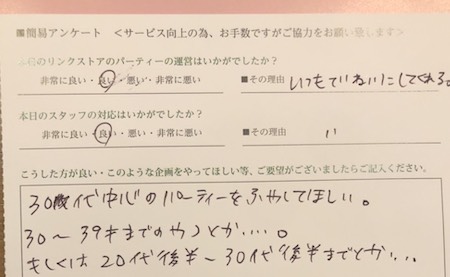 ■簡易アンケート <サービス向上の為、お手数ですがご協力をお願い致します>
本日のリンクストアのパーティーの運営はいかがでしたか?
非常に良い・良い・悪い・非常に悪い ■その理由 いつもていねいにしてくれる。
本日のスタッフの対応はいかがでしたか?
非常に良い・良い・悪い・非常に悪い ■その理由 〃
こうした方が良い・このような企画をやってほしい等、ご要望がございましたらご記入ください。
30代中心のパーティーをふやしてほしい。
30~39才までのやつとか…。
もしくは20代後半~30代後半までとか…